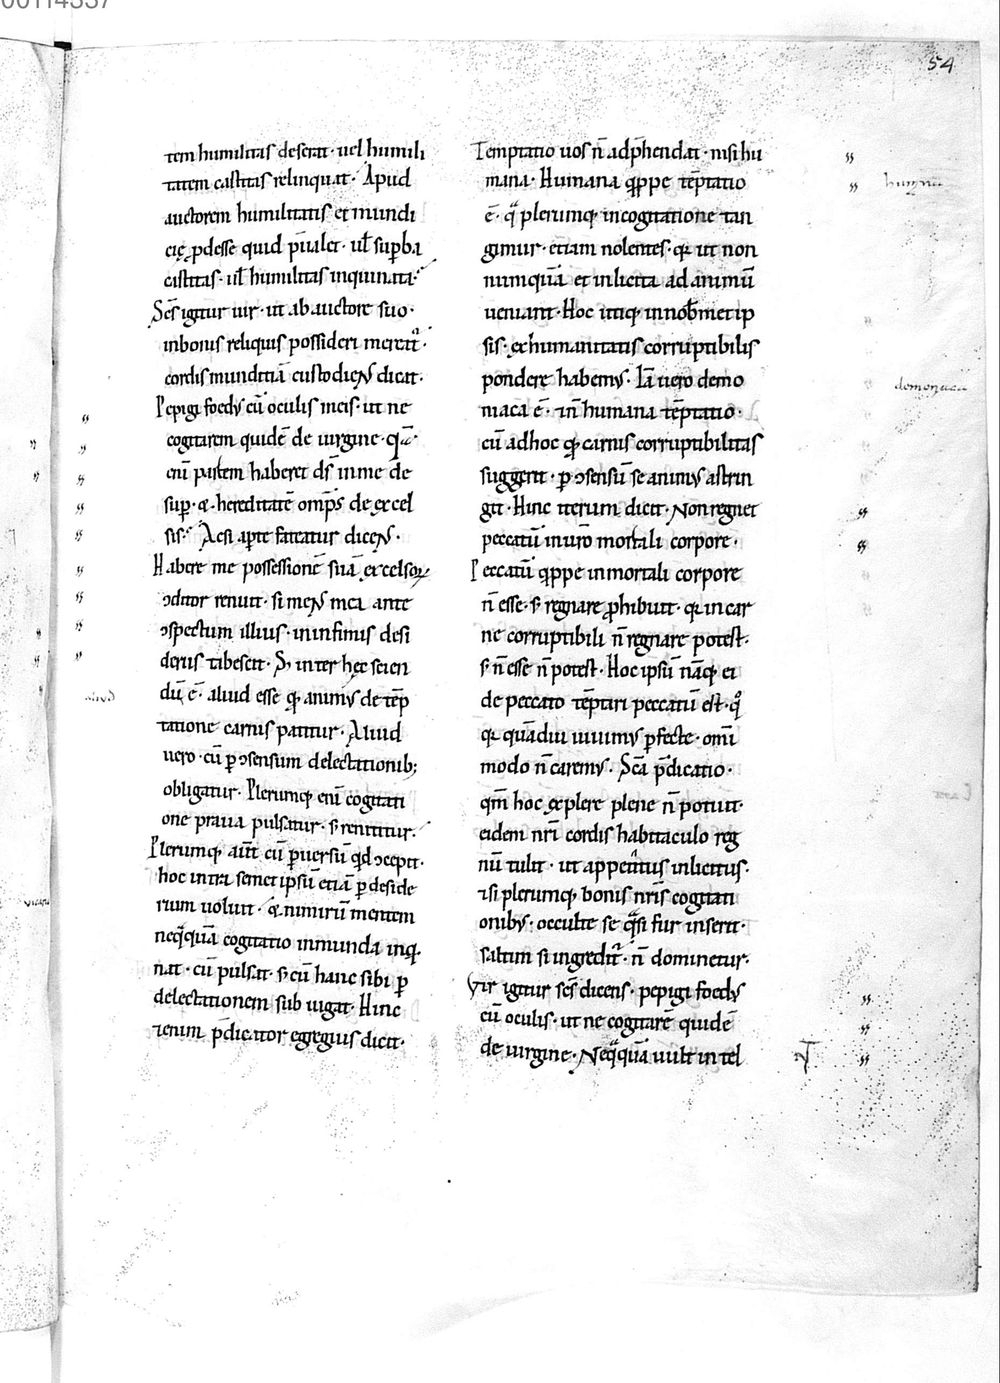 00114337
54
tem humilitas deserit · uel humili
tatem castitas relinquat · Apud
auctorem humilitatis et mundi
cię ꝓdesse quid p̄ualet · ul̄ suꝑba
castitas · ul̄ humilitas inquinata ·
Sc̄s igitur uir · ut ab auctore suo ·
in bonis reliquis possideri mereat᷑ ·
cordis munditiā custodiens dicit ·
Pepigi foedus cū oculis meis · ut ne
cogitarem quidē de uirgine · quā ·
enī partem haberet d̄s in me de
suꝑ · & hereditatē omp̄s de excel
sis · Ac si aꝑte fateatur dicens ·
Habere me possessionē suā excelsoꝝ
ꝯditor renuit · si mens mea ante
ꝯspectum illius · in infimis desi
deriis tibescit · S; inter hęc scien
dū ē · aliud esse qđ animus de tēp
tatione carnis patitur · Aliud
uero · cū ꝑ ꝯsensum delectationib;
obligatur · Plerumq; enī cogitati
one praua pulsatur · s; renititur ·
Plerumq; aut̄ cū ꝑuersū qđ ꝯcepit ·
hoc intra semetipsū etiā ꝑ deside
rium uoluit · & nimirū mentem
neq̄quā cogitatio inmunda inq
nat · cū pulsat · s; cū hanc sibi ꝑ
delectationem subiugat · Hinc
& enim p̄dicator egregius dicit ·
Temptatio uos n̄ adp̄hendat · nisi hu
mana · Humana q̄ppe tēptatio
ē · q̄ plerumq; in cogitatione tan
gimur · etiam nolentes · q; ut non
numquā et inlicita ad animū
ueniant · Hoc utiq; in nob̄metip
sis · ex humanitatis corruptibilis
pondere habemus · Iā uero demo
niaca ē · & n̄ humana tēptatio ·
cū ad hoc qđ carnis corruptibilitas
suggerit · ꝑ ꝯsensū se animus astrin
git · Hinc iterum dicit · Non regnet
peccatū in uro mortali corpore ·
Peccatū q̄ppe in mortali corpore
n̄ esse · s; regnare ꝓhibuit · q; in car
ne corruptibili n̄ regnare potest ·
s; n̄ esse n̄ potest · Hoc ipsū nāq; ei
de peccato tēptari peccatū est · qđ
q; quādiu uiuimus ꝑfecte · omī
modo n̄ caremus · Sc̄a p̄dicatio ·
qm̄ hoc exꝑlere plene n̄ potuit ·
eidem nr̄i cordis habitaculo reg
nū tulit · ut appetitus inlicitus ·
& si plerumq; bonis nr̄is cogitati
onibus · occulte se q̄si fur inserit ·
saltim si ingredit᷑ · n̄ dominetur ·
Vir igitur sc̄s dicens · pepigi foedus
cū oculis · ut ne cogitarē quidē
de uirgine · Neq̄quā uult intel
humana
demoniaca
aliud